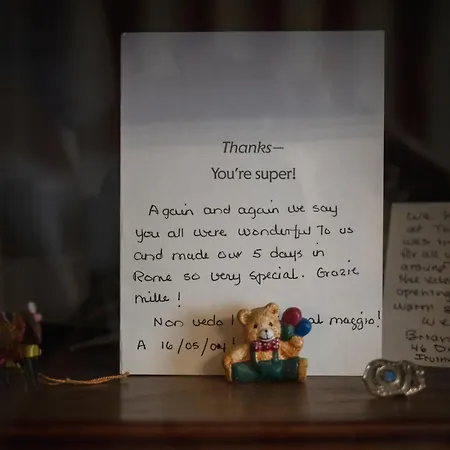 Thanks—
You're super!
Again and again we say
you all were wonderful to us
and made our 5 days in
Rome so very special. Grazie
mille!
Non vedo l al maggio!
A 16/05/04
We
at Th
was
for all
around
the
opening
warm
We
Brian
46 D